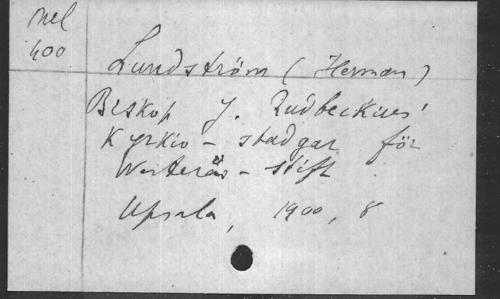 Mel
400
Lundström (Herman)
Biskop J. Rudbeckius'
Kyrkio-stadgar för
Westerås-stift
Upsala, 1900, 8